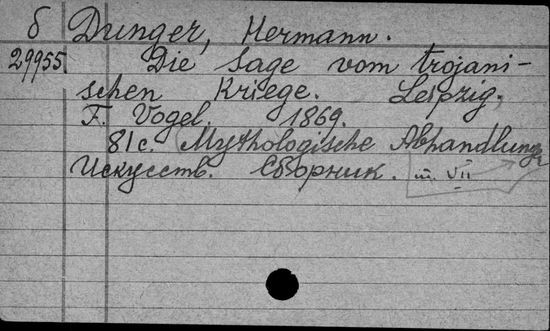 б Dunger, Hermann.
29955 Die Sage vom trojani-
schen Kriege. Leipzig.
F. Vogel. 1869.
81с. (Mythologische Abhandlung
Искусств. Сборник. т. VII